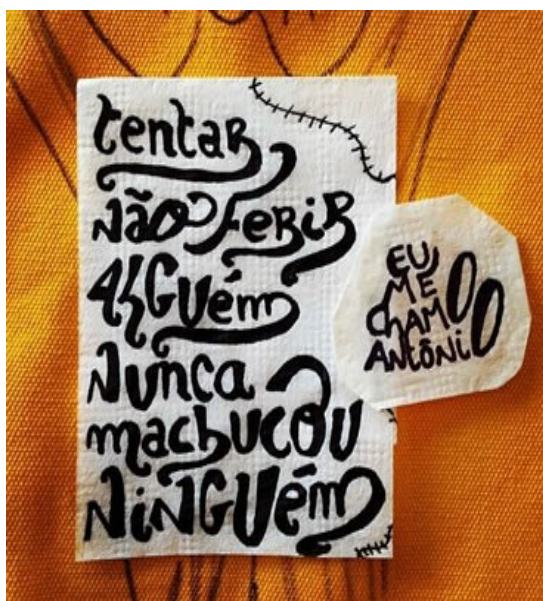 tentar
não ferir
alguém
nunca
machucou
ninguém
EU
ME
chamo
Antônio